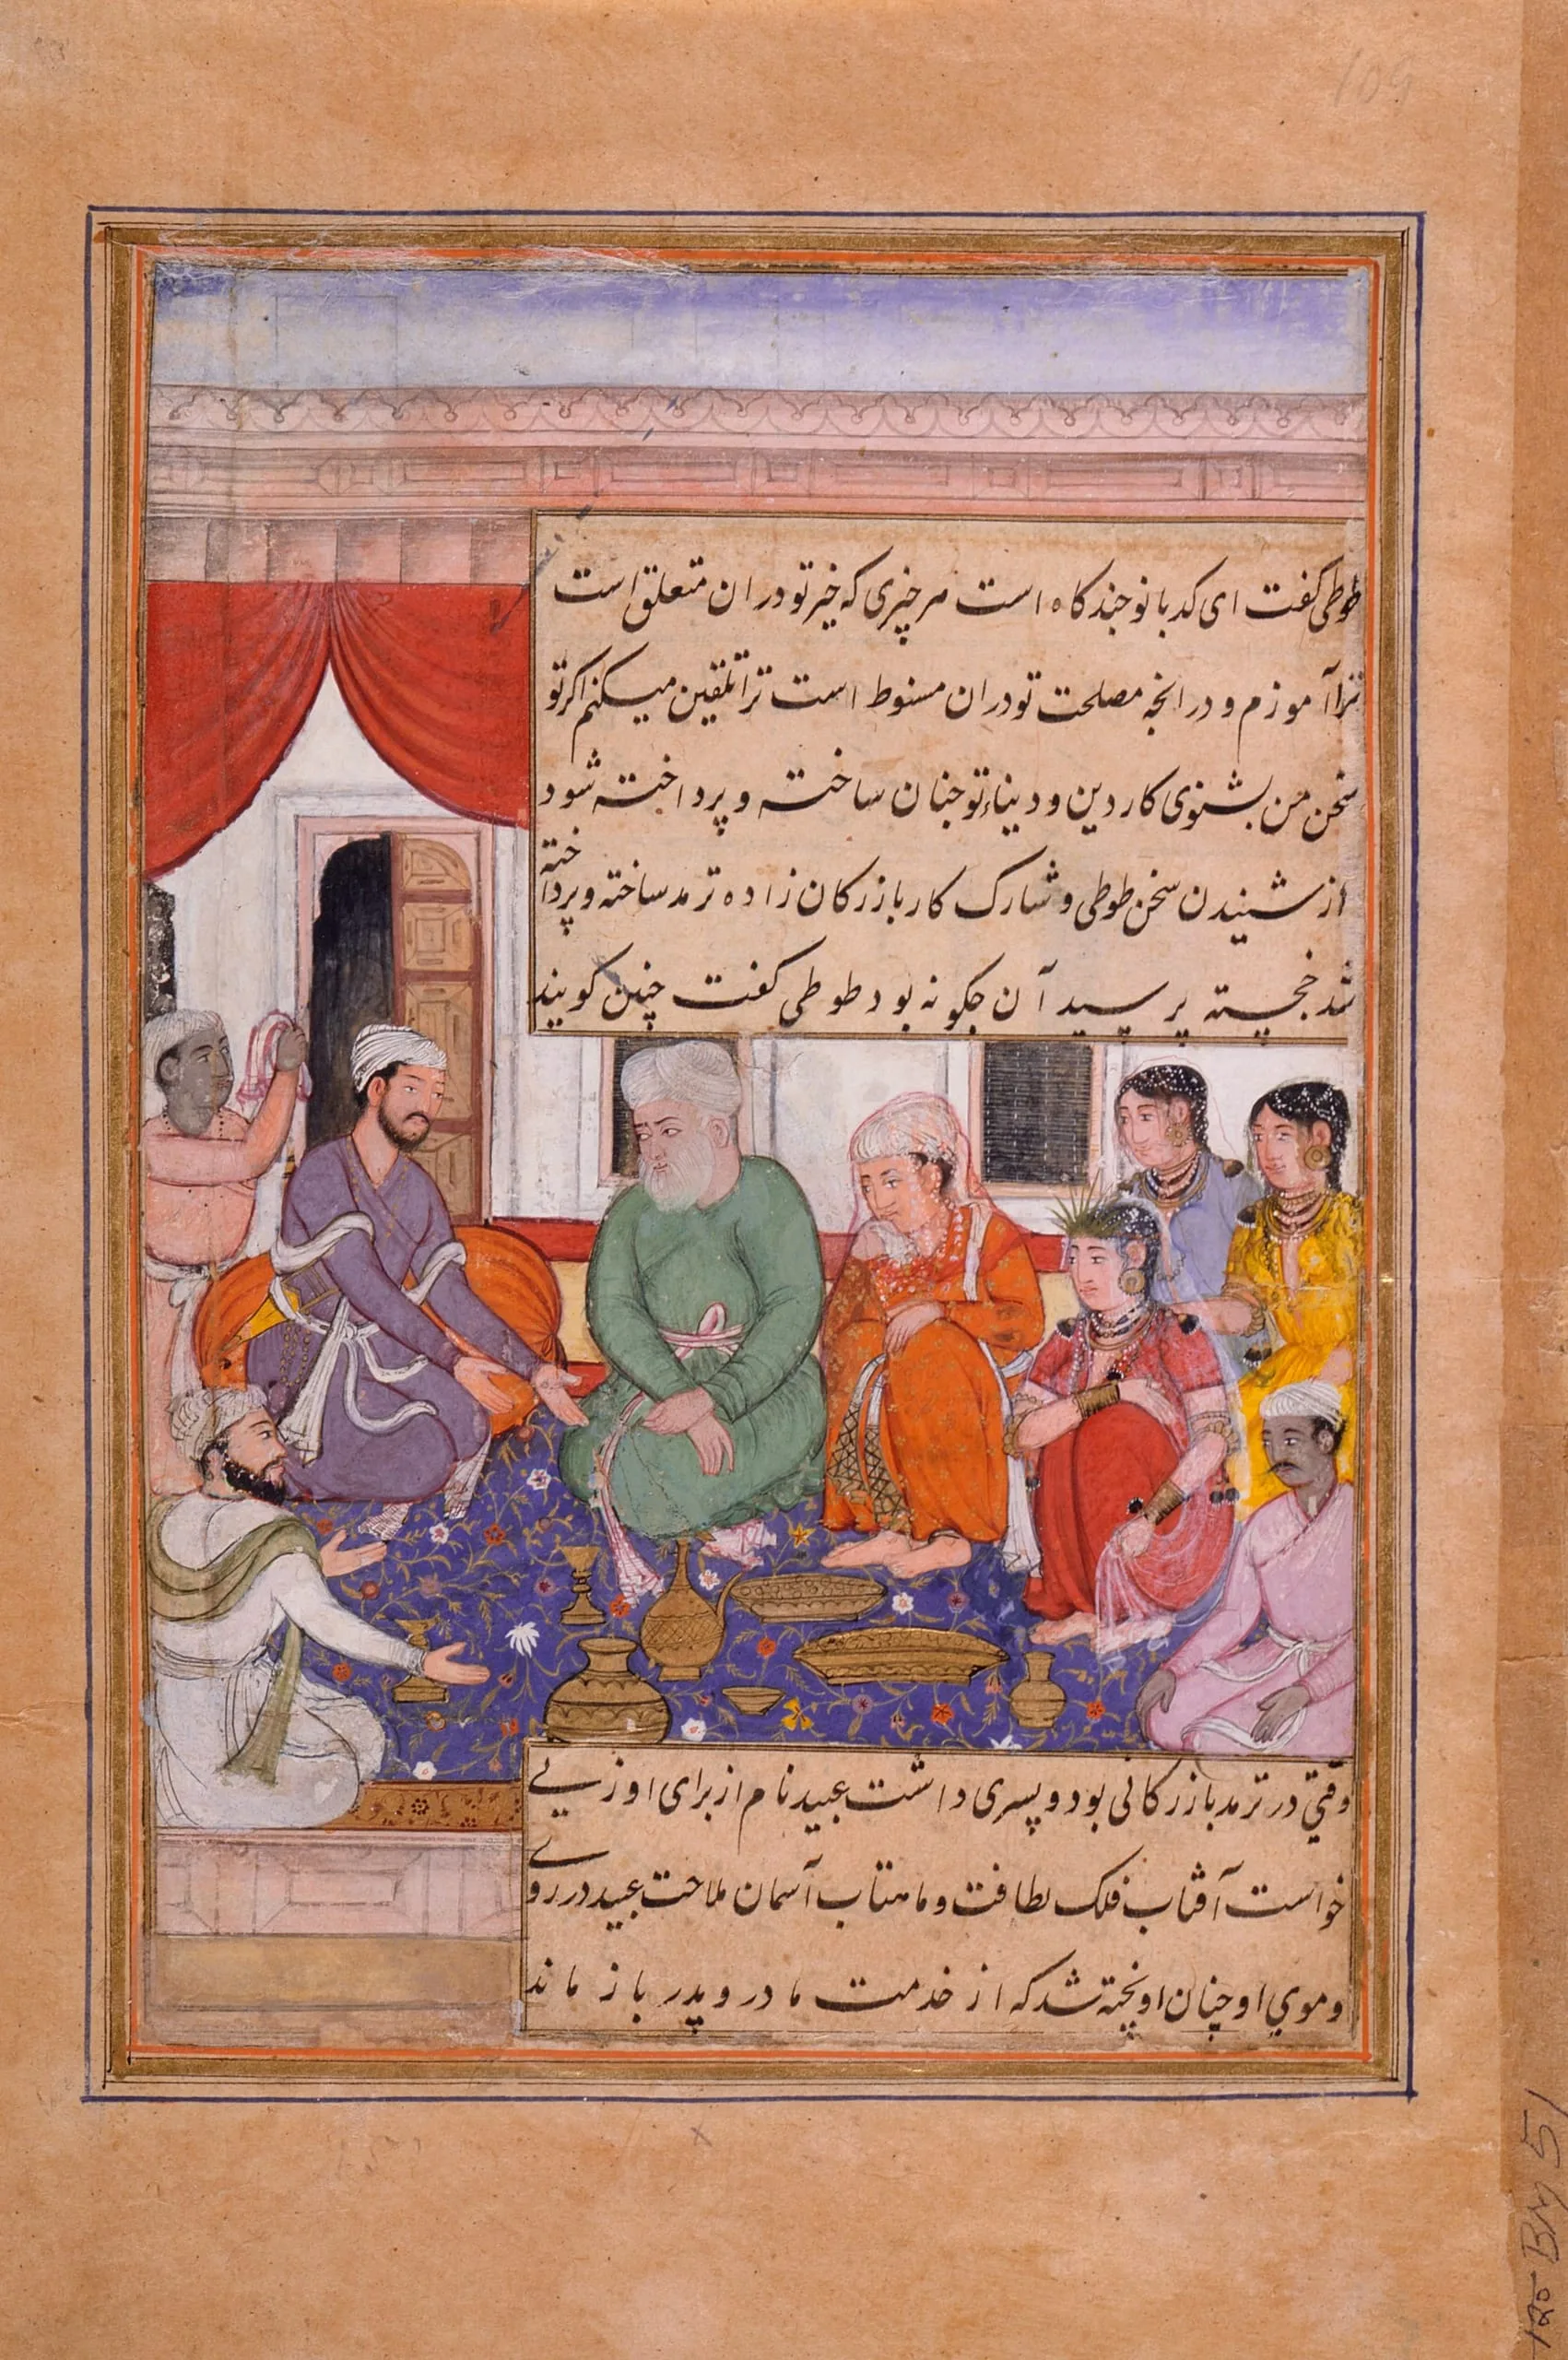 109
طوطی کفت ای کدبانو چندکاه است هر چیزی که خیر تو در ان متعلق است
ترا آموزم و در انچه مصلحت تو در ان منوط است ترا تلقین میکنم اکر تو
سخن من بشنوی کار دین و دنیاء تو چنان ساخته و پرداخته شود
از شنیدن سخن طوطی و شارک کار بازرکان زاده ترمد ساخته و پرداخته
شد خجسته پرسید آن چکونه بود طوطی کفت چنین کویند
وقتی در ترمد بازرکانی بود و پسری داشت عبید نام از برای او زنے
خواست آفتاب فلک لطافت و ماهتاب آسمان ملاحت عبید در روے
و موی او چنان اویخته شد که از خدمت مادر و پدر باز ماند
BM 51